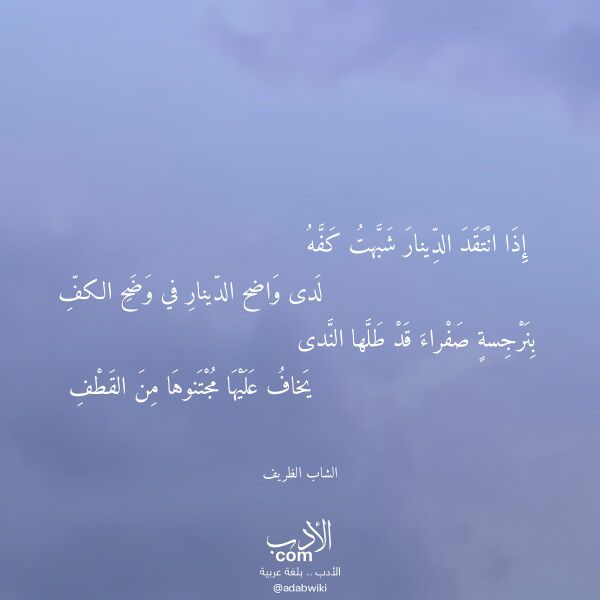 إِذَا انْتَقَدَ الدِّينارَ شَبَّهتُ كَفَّهُ
لَدى وَاضح الدّينارِ في وَضَحِ الكفِّ
بِنَرْجِسةٍ صَفْراءَ قَدْ طَلَّها النَّدى
يَخافُ عَلَيْهَا مُجْتَنوهَا مِنَ القَطْفِ
الشاب الظريف
الأدب
com
الأدب .. بلغة عربية
@adabwiki